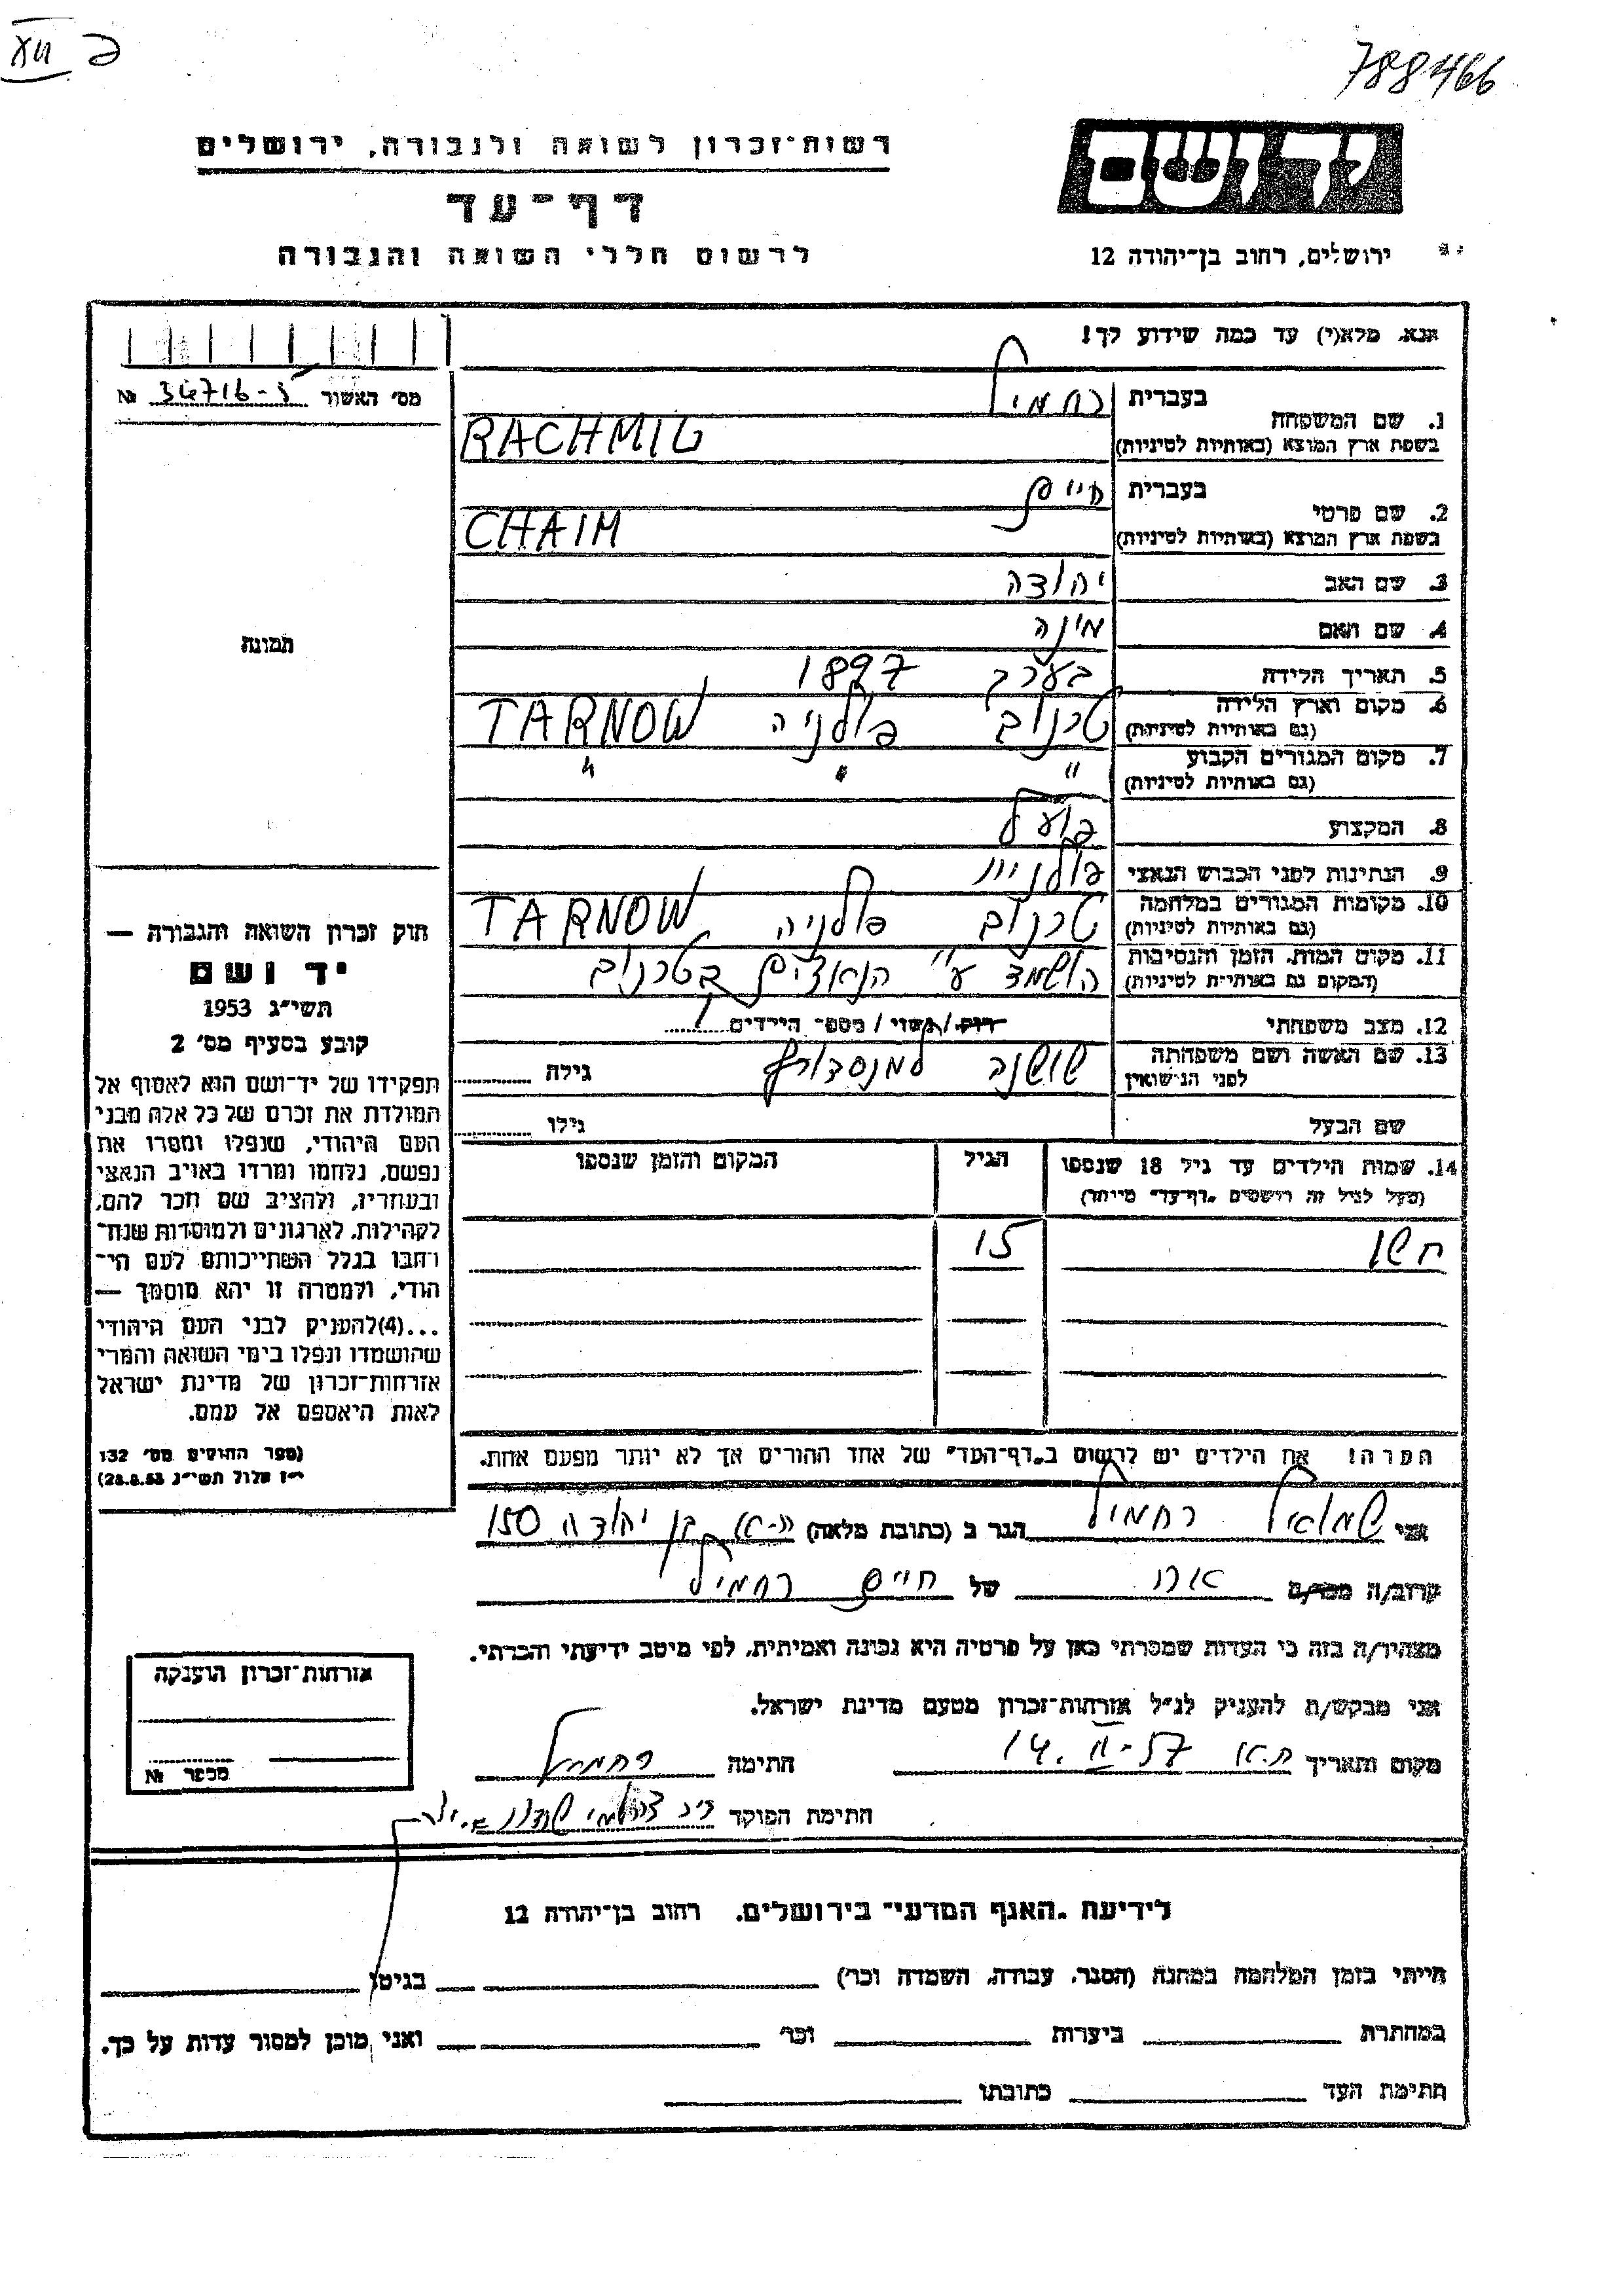 788466
רשות־זכרון לשואה ולגבורה, ירושלים
יד ושם
דף־עד
לרשום חללי השואה והגבורה
ירושלים, רחוב בן־יהודה 12
אנא, מלא(י) עד כמה שידוע לך!
מס' האשור 34716-5 №
1. שם המשפחה
בעברית רחמיל
בשפת ארץ המוצא (באותיות לטיניות) RACHMIL
2. שם פרטי
בעברית חיים
בשפת ארץ המוצא (באותיות לטיניות) CHAIM
3. שם האב יהודה
4. שם האם מינה
5. תאריך הלידה בערב 1897
6. מקום וארץ הלידה טרנוב פולניה TARNOW
(גם באותיות לטיניות)
7. מקום המגורים הקבוע " " "
(גם באותיות לטיניות)
8. המקצוע פועל
9. הנתינות לפני הכבוש הנאצי פולנית
10. מקומות המגורים במלחמה טרנוב פולניה TARNOW
(גם באותיות לטיניות)
11. מקום המות, הזמן והנסיבות הושמד ע"י הנאצים בטרנוב
(המקום גם באותיות לטיניות)
12. מצב משפחתי רוק/נשוי/מספר הילדים 1
13. שם האשה ושם משפחתה שושנה למנסדורף גילה
לפני הנישואין
שם הבעל גילו
14. שמות הילדים עד גיל 18 שנספו הגיל המקום והזמן שנספו
(מעל לגיל זה רושמים "דף־עד" מיוחד)
15
הערה: את הילדים יש לרשום ב"דף־העד" של אחד ההורים אך לא יותר מפעם אחת.
תמונה
חוק זכרון השואה והגבורה —
יד ושם
תשי"ג 1953
קובע בסעיף מס' 2
תפקידו של יד־ושם הוא לאסוף אל
המולדת את זכרם של כל אלה מבני
העם היהודי, שנפלו ומסרו את
נפשם, נלחמו ומרדו באויב הנאצי
ובעוזריו, ולהציב שם וזכר להם,
לקהילות, לארגונים ולמוסדות שנח־
רבו בגלל השתייכותם לעם הי־
הודי, ולמטרה זו יהא מוסמך —
...(4) להעניק לבני העם היהודי
שהושמדו ונפלו בימי השואה והמרי
אזרחות־זכרון של מדינת ישראל
לאות היאספם אל עמם.
(ספר החוקים מס' 132
י"ז אלול תשי"ג 28.8.53)
אני שמואל רחמיל הגר ב (כתובת מלאה) ת-א, בן יהודה 150
קרוב/ה מכר/ה אחי של חיים רחמיל
מצהיר/ה בזה כי העדות שמסרתי כאן על פרטיה היא נכונה ואמיתית, לפי מיטב ידיעתי והכרתי.
אני מבקש/ת להעניק לנ"ל אזרחות־זכרון מטעם מדינת ישראל.
מקום ותאריך ת.א. 14. II-57 חתימה רחמיל
חתימת הפוקד
אזרחות־זכרון הוענקה
מספר №
לידיעת "האגף המדעי" בירושלים, רחוב בן־יהודה 12
הייתי בזמן המלחמה במחנה (הסגר, עבודה, השמדה וכו') בגיטו
במחתרת ביערות וכו' ואני מוכן למסור עדות על כך.
חתימת העד כתובתו